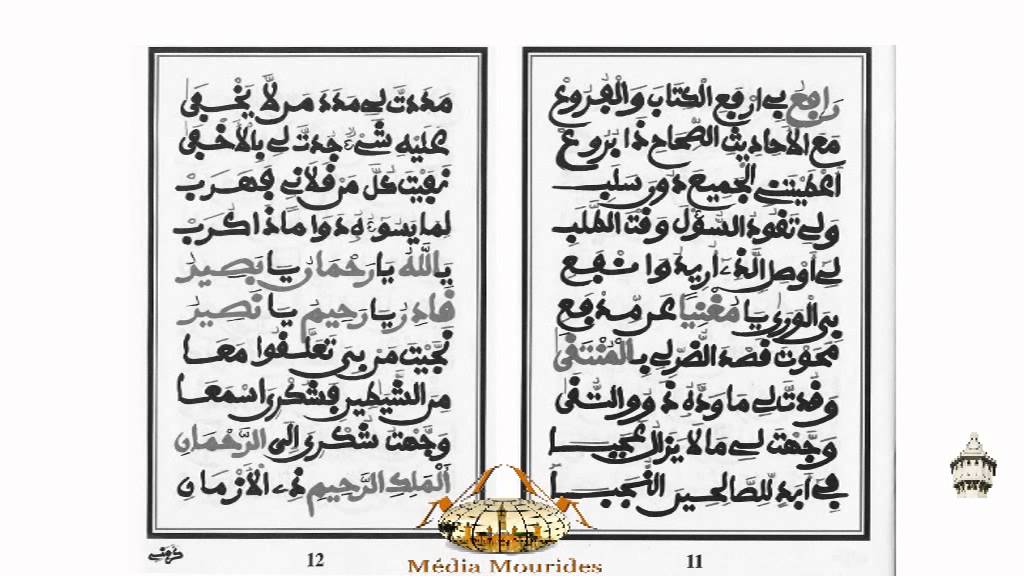 رَافِعُ بِي ارْفَعِ الْكِتَابَ وَالْفُرُوعْ
مَعَ الْأَحَادِيثِ الصِّحَاحِ ذَا بُرُوعْ
أَعْطَيْتَنِي الْجَمِيعَ دُونَ سَلَبِ
وَلِي تَقُودُ السُّؤْلَ وَقْتَ الطَّلَبِ
لِي أَوْصِلِ الَّذِي أُرِيدُ وَانْفَعِ
بِيَ الْوَرَى يَا مُغْنِيًا عَنْ مِدْفَعِ
مَحَوْتَ قَصْدَ الضُّرِّ لِي بِالْمُنْتَقَى
وَقُدتَّ لِي مَا وَدَّهُ ذَوُو التُّقَى
وَجَّهْتَ لِي مَا لَا يَزَالُ عَجَبَا
فِي أَبَدٍ لِلصَّالِحِينَ النُّجَبَا
11
مَدَدتَّ لِي مَدَدَ مَن لَّا يَخْفَى
عَلَيْهِ شَيْءٌ جُدتَّ لِي بِالْأَخْفَى
نَفَيْتَ كُلَّ مَنْ قَلَانِي فَهَرَبْ
لِمَا يَسُوءُهُ دَوَامًا ذَا كُرَبْ
يَا اللَّهُ يَا رَحْمَانُ يَا بَصِيرُ
قَادِرُ يَا رَحِيمُ يَا نَصِيرُ
نَجَّيْتَ مَنْ بِي تَعَلَّقُوا مَعَا
مِنَ الشَّيَاطِينِ فَشُكْرِي اسْمَعَا
وَجَّهْتُ شُكْرِي إِلَى الرَّحْمَانِ
أَلْمَلِكِ الرَّحِيمِ ذِي الْأَزْمَانِ
12
Média Mourides